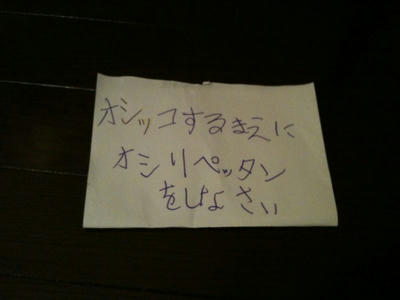 オシッコするまえに
オシリペッタン
をしなさい